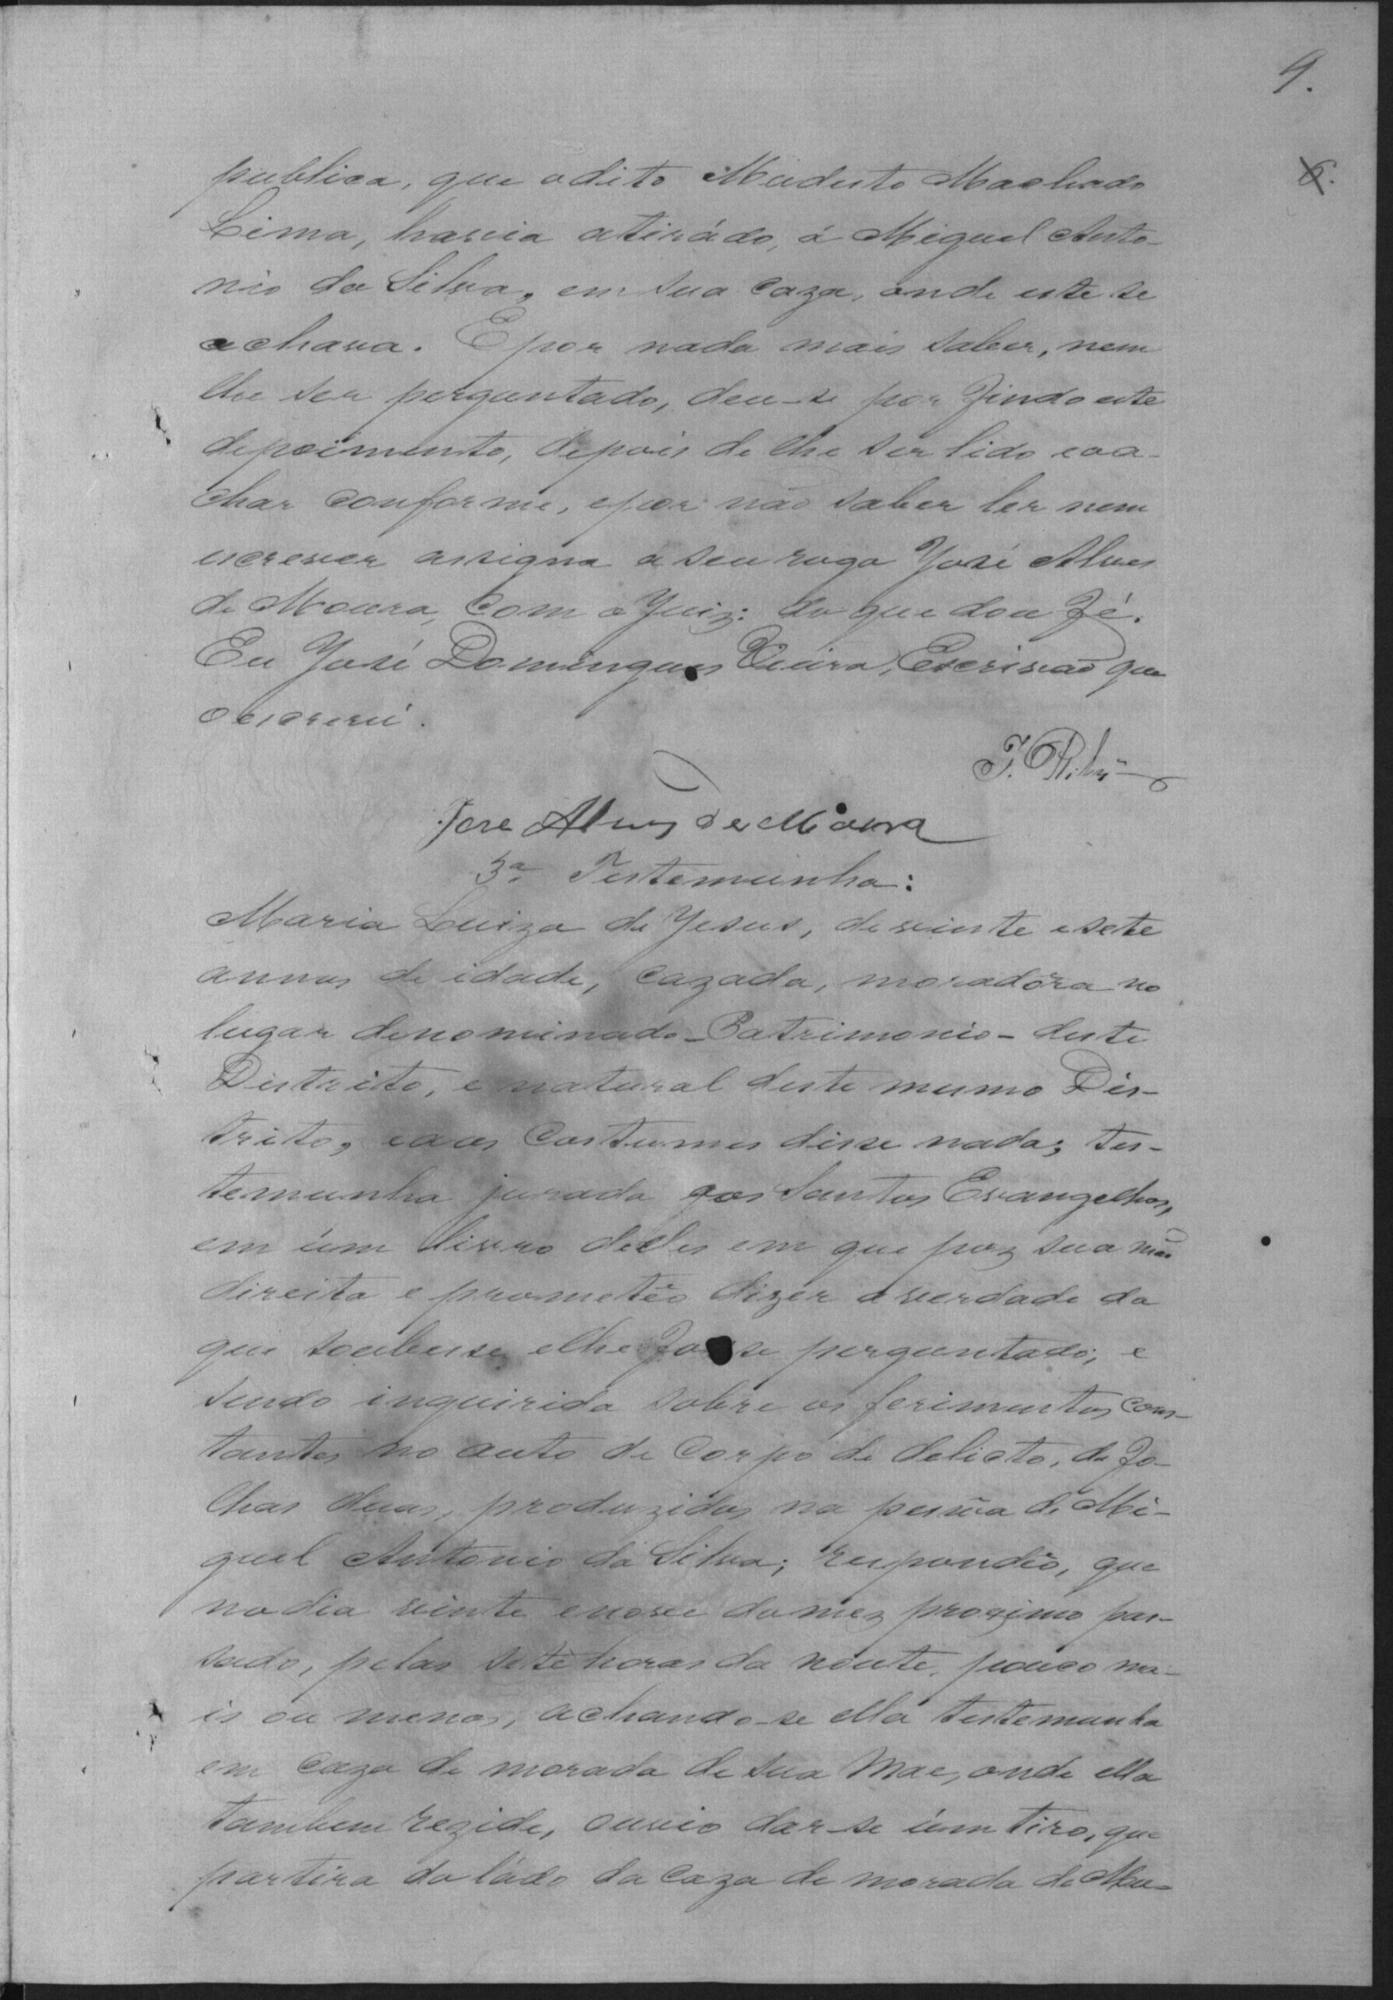 9.
6.
publica, que o dito Modesto Machado
Lima, havia atirádo, á Miguel Anto-
nio da Silva, em sua caza, onde este se
achava. E por nada mais saber, nem
lhe ser perguntado, deu-se por findo este
depoimento, depois de lhe ser lido e o a-
char conforme, e por não saber ler nem
escrever assigna a seu rogo José Alves
de Moura, com o Juiz: do que dou fé.
Eu José Domingues Vieira, Escrivão que
o escrevi.
José Alves de Moura
3ª Testemunha:
Maria Luiza de Jesus, de vinte e sete
annos de idade, cazada, moradôra no
lugar denominado - Patrimonio - deste
Districto, e natural deste mesmo Dis-
tricto, e aos costumes disse nada; tes-
temunha jurada aos Santos Evangelhos,
em úm livro delles em que poz sua mão
direita e prometêo dizer a verdade do
que soubesse e lhe fosse perguntado; e
sendo inquirida sobre os ferimentos cons-
tantes no auto de corpo de delicto, de fo-
lhas duas, produzidos na pessôa de Mi-
guel Antonio da Silva; respondêo, que
no dia vinte e nove do mez proximo pas-
sado, pelas sete horas da noute, pouco ma-
is ou menos, achando-se ella testemunha
em caza de morada de sua Mae, onde ella
tambem rezide, ouvio dar-se úm tiro, que
partira do ládo da caza de morada de Mo-